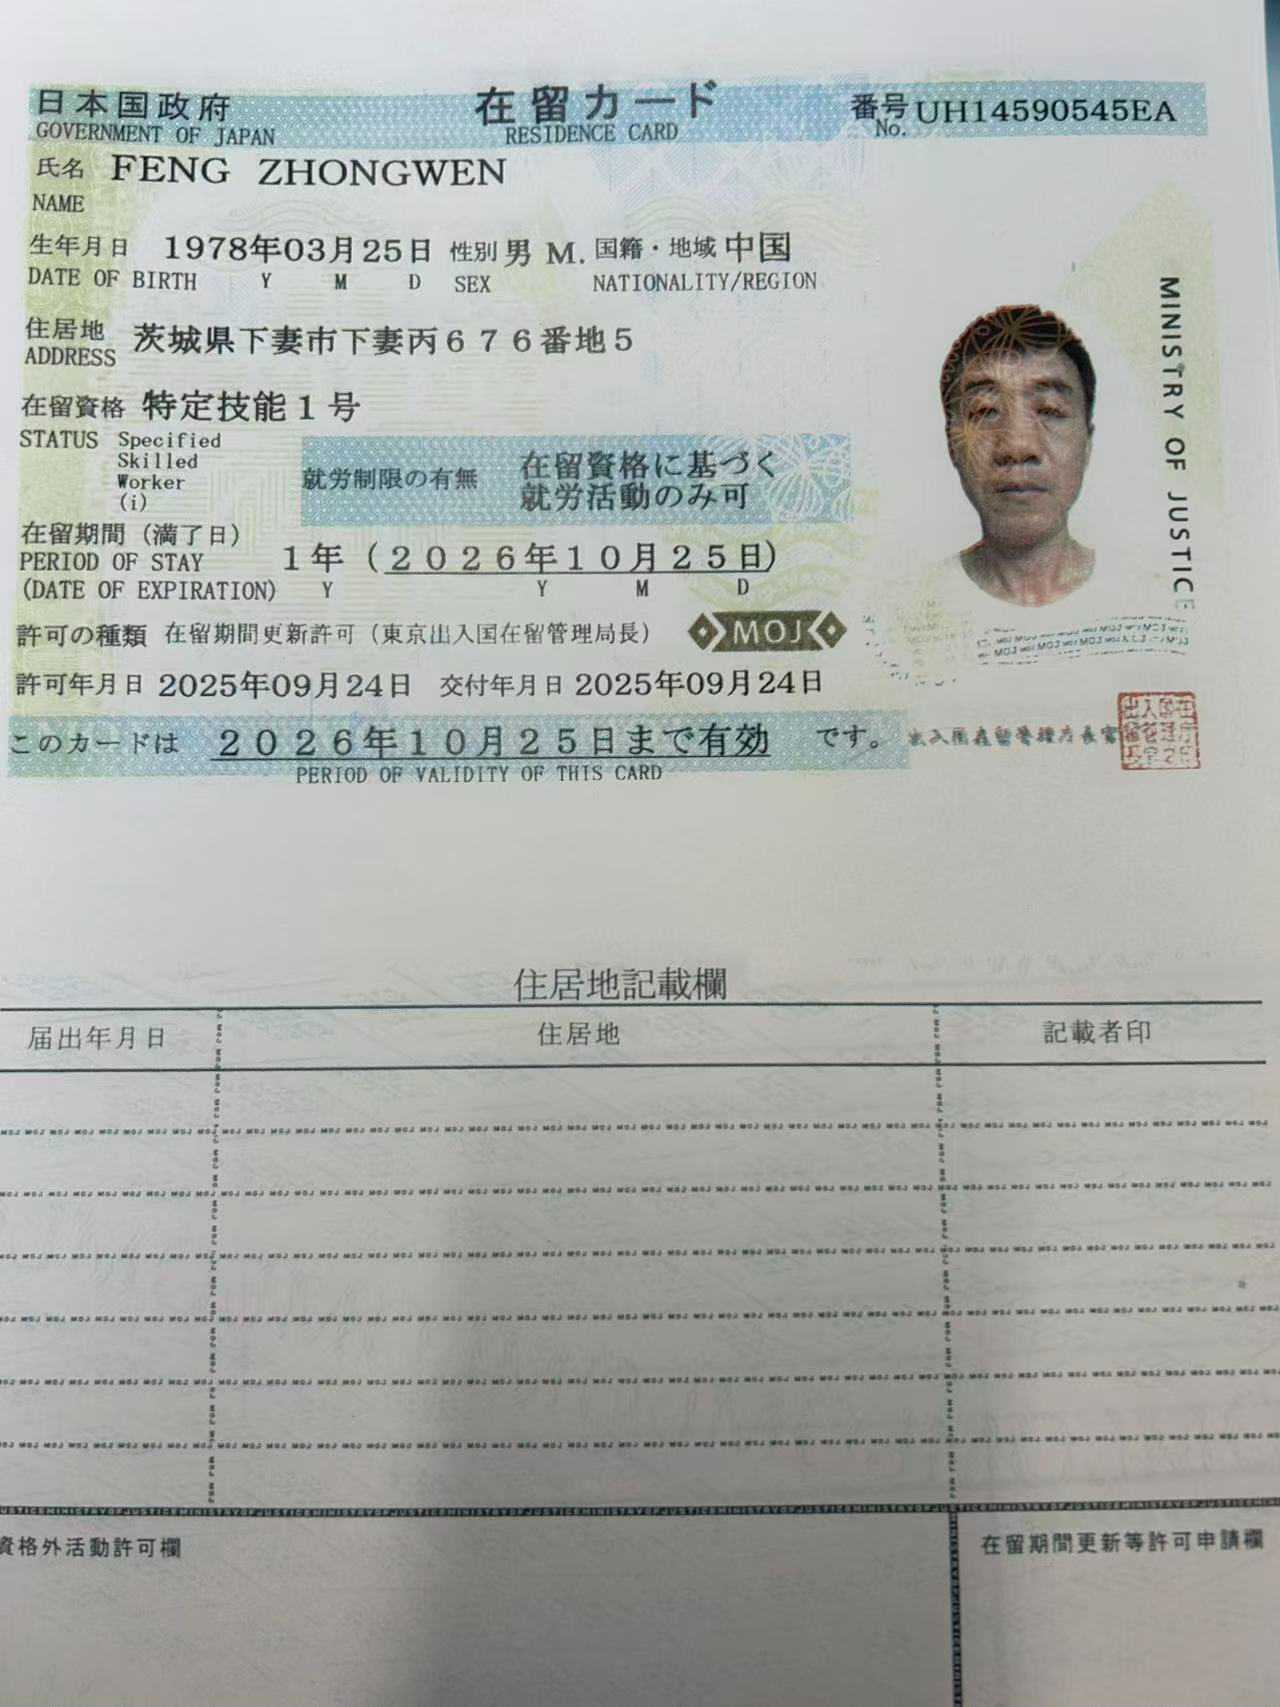 日本国政府 在留カード 番号 UH14590545EA
GOVERNMENT OF JAPAN RESIDENCE CARD No.
氏名 FENG ZHONGWEN
NAME
生年月日 1978年03月25日 性別 男 M. 国籍・地域 中国
DATE OF BIRTH Y M D SEX NATIONALITY/REGION
住居地 茨城県下妻市下妻丙676番地5
ADDRESS
在留資格 特定技能1号
STATUS Specified
Skilled
Worker
(i)
就労制限の有無 在留資格に基づく
就労活動のみ可
在留期間(満了日)
PERIOD OF STAY 1年(2026年10月25日)
(DATE OF EXPIRATION) Y Y M D
許可の種類 在留期間更新許可(東京出入国在留管理局長)
MOJ
許可年月日 2025年09月24日 交付年月日 2025年09月24日
このカードは 2026年10月25日まで有効 です。
PERIOD OF VALIDITY OF THIS CARD
出入国在留管理庁長官
MINISTRY OF JUSTICE
住居地記載欄
届出年月日 住居地 記載者印
資格外活動許可欄 在留期間更新等許可申請欄